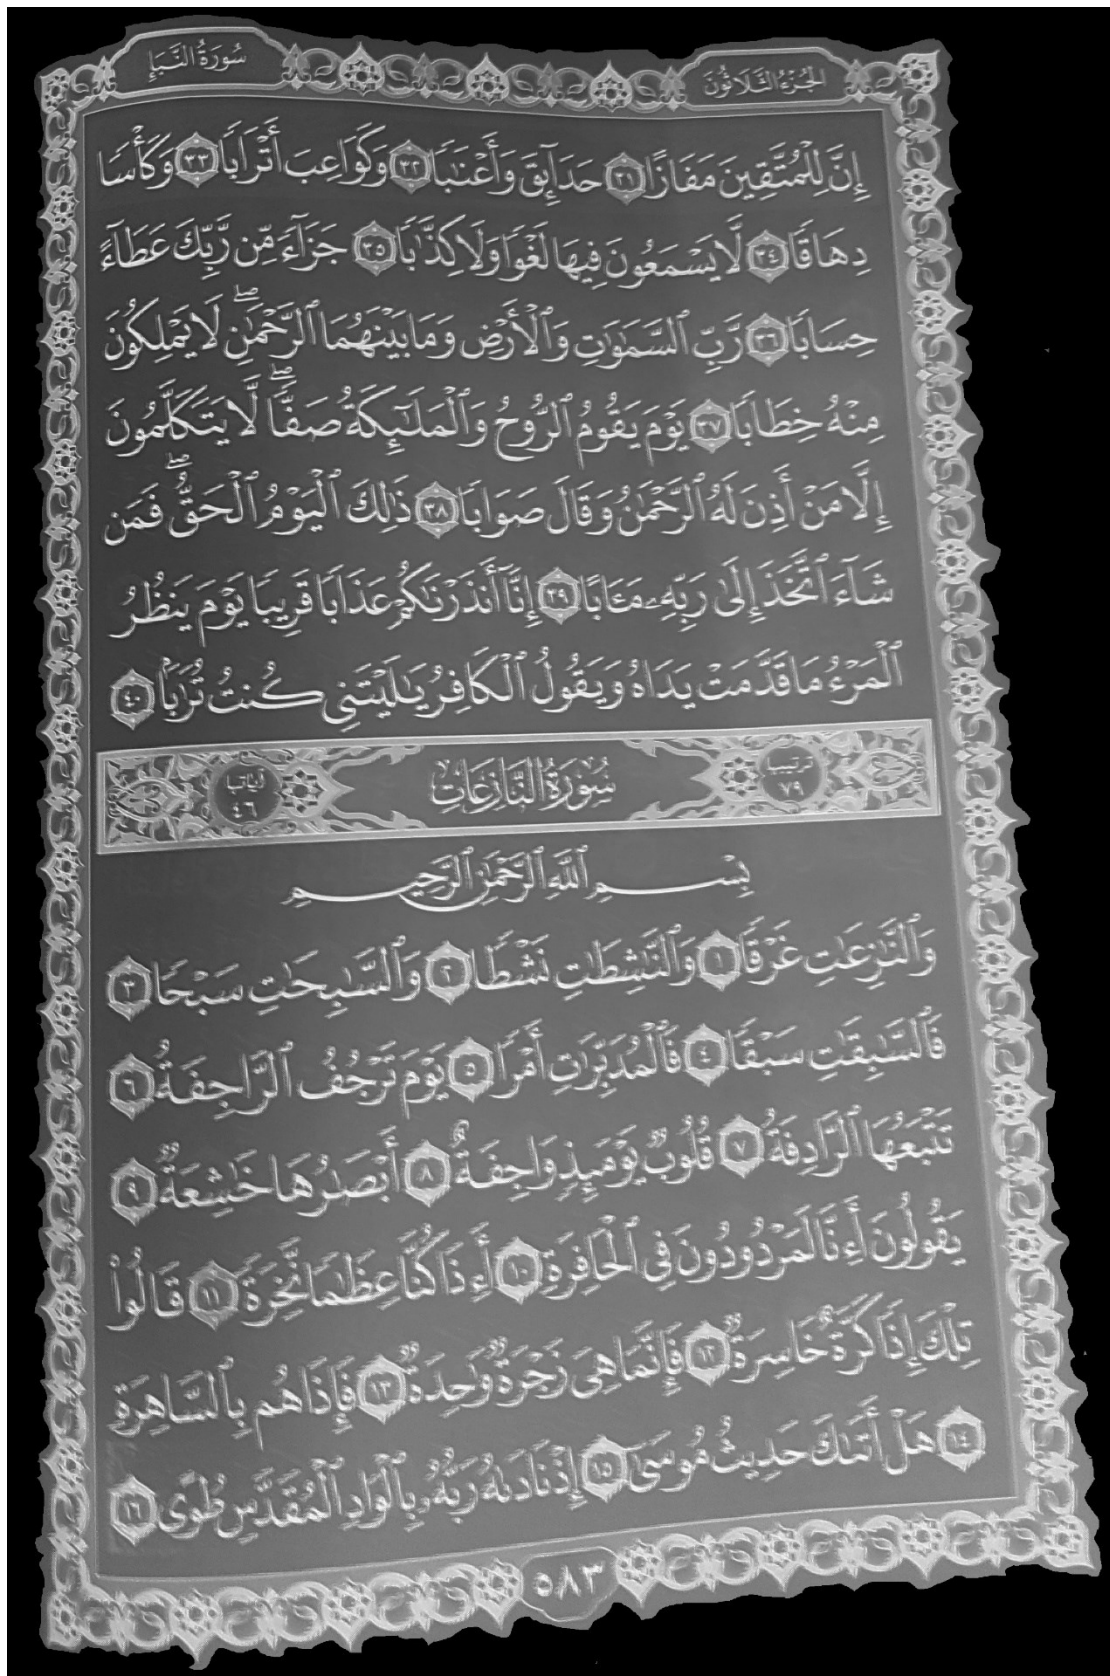 الجزء الثلاثون
سورة النبإ
إِنَّ لِلْمُتَّقِينَ مَفَازًا ٣١ حَدَآئِقَ وَأَعْنَٰبًا ٣٢ وَكَوَاعِبَ أَتْرَابًا ٣٣ وَكَأْسًا
دِهَاقًا ٣٤ لَّا يَسْمَعُونَ فِيهَا لَغْوًا وَلَا كِذَّٰبًا ٣٥ جَزَآءً مِّن رَّبِّكَ عَطَآءً
حِسَابًا ٣٦ رَّبِّ ٱلسَّمَٰوَٰتِ وَٱلْأَرْضِ وَمَا بَيْنَهُمَا ٱلرَّحْمَٰنِ ۖ لَا يَمْلِكُونَ
مِنْهُ خِطَابًا ٣٧ يَوْمَ يَقُومُ ٱلرُّوحُ وَٱلْمَلَٰٓئِكَةُ صَفًّا ۖ لَّا يَتَكَلَّمُونَ
إِلَّا مَنْ أَذِنَ لَهُ ٱلرَّحْمَٰنُ وَقَالَ صَوَابًا ٣٨ ذَٰلِكَ ٱلْيَوْمُ ٱلْحَقُّ ۖ فَمَن
شَآءَ ٱتَّخَذَ إِلَىٰ رَبِّهِۦ مَـَٔابًا ٣٩ إِنَّآ أَنذَرْنَٰكُمْ عَذَابًا قَرِيبًا يَوْمَ يَنظُرُ
ٱلْمَرْءُ مَا قَدَّمَتْ يَدَاهُ وَيَقُولُ ٱلْكَافِرُ يَٰلَيْتَنِى كُنتُ تُرَٰبًۢا ٤٠
ترتيبها ٧٩
سُورَةُ النَّازِعَاتِ
آياتها ٤٦
بِسْمِ ٱللَّهِ ٱلرَّحْمَٰنِ ٱلرَّحِيمِ
وَٱلنَّٰزِعَٰتِ غَرْقًا ١ وَٱلنَّٰشِطَٰتِ نَشْطًا ٢ وَٱلسَّٰبِحَٰتِ سَبْحًا ٣
فَٱلسَّٰبِقَٰتِ سَبْقًا ٤ فَٱلْمُدَبِّرَٰتِ أَمْرًا ٥ يَوْمَ تَرْجُفُ ٱلرَّاجِفَةُ ٦
تَتْبَعُهَا ٱلرَّادِفَةُ ٧ قُلُوبٌ يَوْمَئِذٍ وَاجِفَةٌ ٨ أَبْصَٰرُهَا خَٰشِعَةٌ ٩
يَقُولُونَ أَءِنَّا لَمَرْدُودُونَ فِى ٱلْحَافِرَةِ ١٠ أَءِذَا كُنَّا عِظَٰمًا نَّخِرَةً ١١ قَالُوا۟
تِلْكَ إِذًا كَرَّةٌ خَاسِرَةٌ ١٢ فَإِنَّمَا هِىَ زَجْرَةٌ وَٰحِدَةٌ ١٣ فَإِذَا هُم بِٱلسَّاهِرَةِ
١٤ هَلْ أَتَىٰكَ حَدِيثُ مُوسَىٰٓ ١٥ إِذْ نَادَىٰهُ رَبُّهُۥ بِٱلْوَادِ ٱلْمُقَدَّسِ طُوًى ١٦
٥٨٣